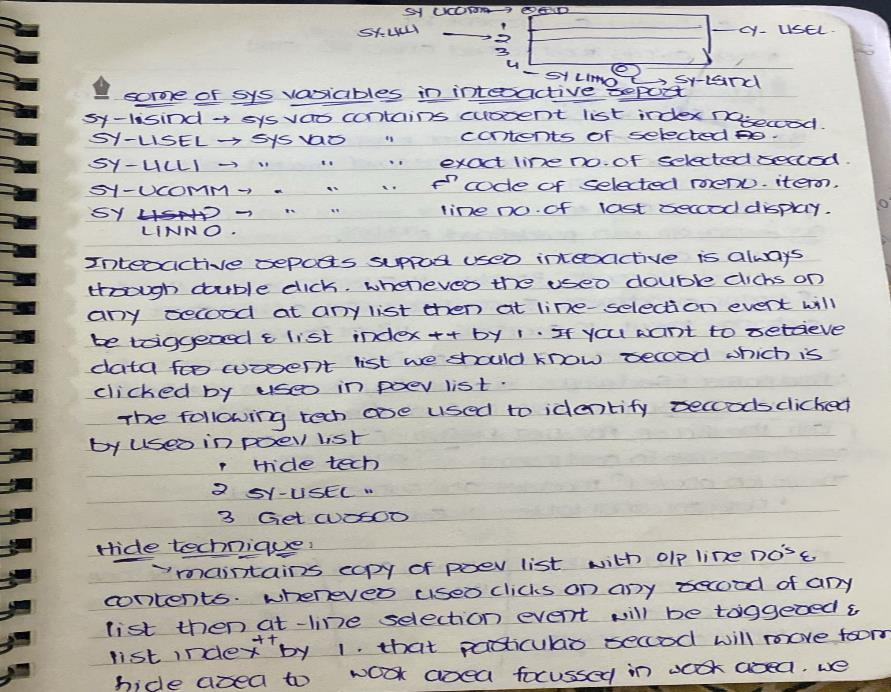 SY UCOMM → 
SY-LILLI → 1 2 3 4
SY-LISEL
SY LINNO
SY-LSIND
Some of sys variables in interactive report
SY-LISIND → sys var contains current list index no.
SY-LISEL → sys var " contents of selected record.
SY-LILLI → " " " exact line no. of selected record.
SY-UCOMM → " " " fn code of selected menu. item.
SY LISND → " " line no. of last record display.
LINNO.
Interactive reports support user interactive is always
through double click. whenever the user double clicks on
any record at any list then at line-selection event will
be triggered & list index ++ by 1. If you want to retrieve
data for current list we should know record which is
clicked by user in prev list.
The following tech are used to identify records clicked
by user in prev list
1 Hide tech
2 SY-LISEL "
3 Get cursor
Hide technique:
→ maintains copy of prev list with o/p line no's &
contents. whenever user clicks on any record of any
list then at-line selection event will be triggered &
list index ++ by 1. that particular record will move from
hide area to work area focussed in work area. we